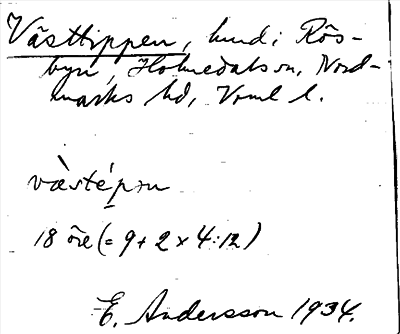 Västtippen, hmd i Rös-
byn, Holmedals sn, Nord-
marks hd, Vrml l.
væ̀stépən
18 öre (= 9 + 2 × 4:12)
E. Andersson 1934.